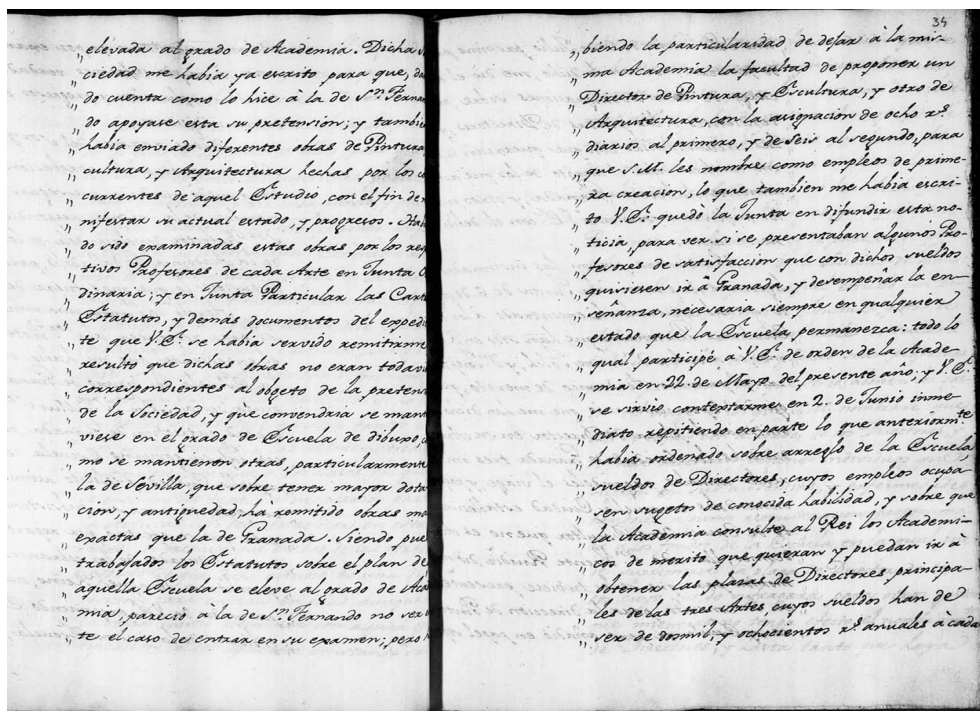 „elevada al grado de Academia. Dicha
„ciedad me habia ya escrito para que, dan
„do cuenta como lo hice à la de Sn. Fernan
„do apoyase esta su pretension; y tambie
„habia enviado diferentes obras de Pintura
„cultura, y Arquitectura hechas por los
„currentes de aquel Estudio, con el fin de
„nifestar su actual estado, y progresos. Habi
„do sido examinadas estas obras por los resp
„tivos Profesores de cada Arte en Junta O
„dinaria; y en Junta Particular las Cart
„Estatutos, y demás documentos del expedi
„te que V.E. se habia servido remitirme
„resultò que dichas obras no eran todavi
„correspondientes al objeto de la pretens
„de la Sociedad, y que convendria se mant
„viese en el grado de Escuela de dibuxo,
„mo se mantienen otras, particularmente
„la de Sevilla, que sobre tener mayor dota
„cion, y antiguedad, ha remitido obras ma
„exactas que la de Granada. Siendo, pue
„trabajados los Estatutos sobre el plan de
„aquella Escuela se eleve al grado de Aca
„mia, pareciò à la de Sn. Fernando no ser
„te el caso de entrar en su examen; pero
34
„biendo la particularidad de dejar à la mis-
„ma Academia la facultad de proponer un
„Director de Pintura, y Escultura, y otro de
„Arquitectura, con la asignacion de ocho rs.
„diarios al primero, y de seis al segundo, para
„que S.M. les nombre como empleos de prime-
„ra creacion, lo que tambien me habia escri-
„to V.E. quedò la Junta en difundir esta no-
„ticia, para ver si se presentaban algunos Pro-
„fesores de satisfaccion que con dichos sueldos
„quisiesen ir à Granada, y desempeñar la en-
„señanza, necesaria siempre en qualquier
„estado que la Escuela permanezca: todo lo
„qual participé à V.E. de orden de la Acade-
„mia en 22. de Mayo del presente año; y V.E.
„se sirvio contextarme en 2. de Junio inme-
„diato repitiendo en parte lo que anteriormte.
„habia ordenado sobre arreglo de la Escuela
„sueldos de Directores, cuyos empleos ocupa-
„sen sugetos de conocida habilidad, y sobre que
„la Academia consulte al Rei los Academi-
„cos de merito que quieran y puedan ir à
„obtener las plazas de Directores principa-
„les de las tres Artes cuyos sueldos han de
„ser de dosmil, y ochocientos rs. anuales à cada